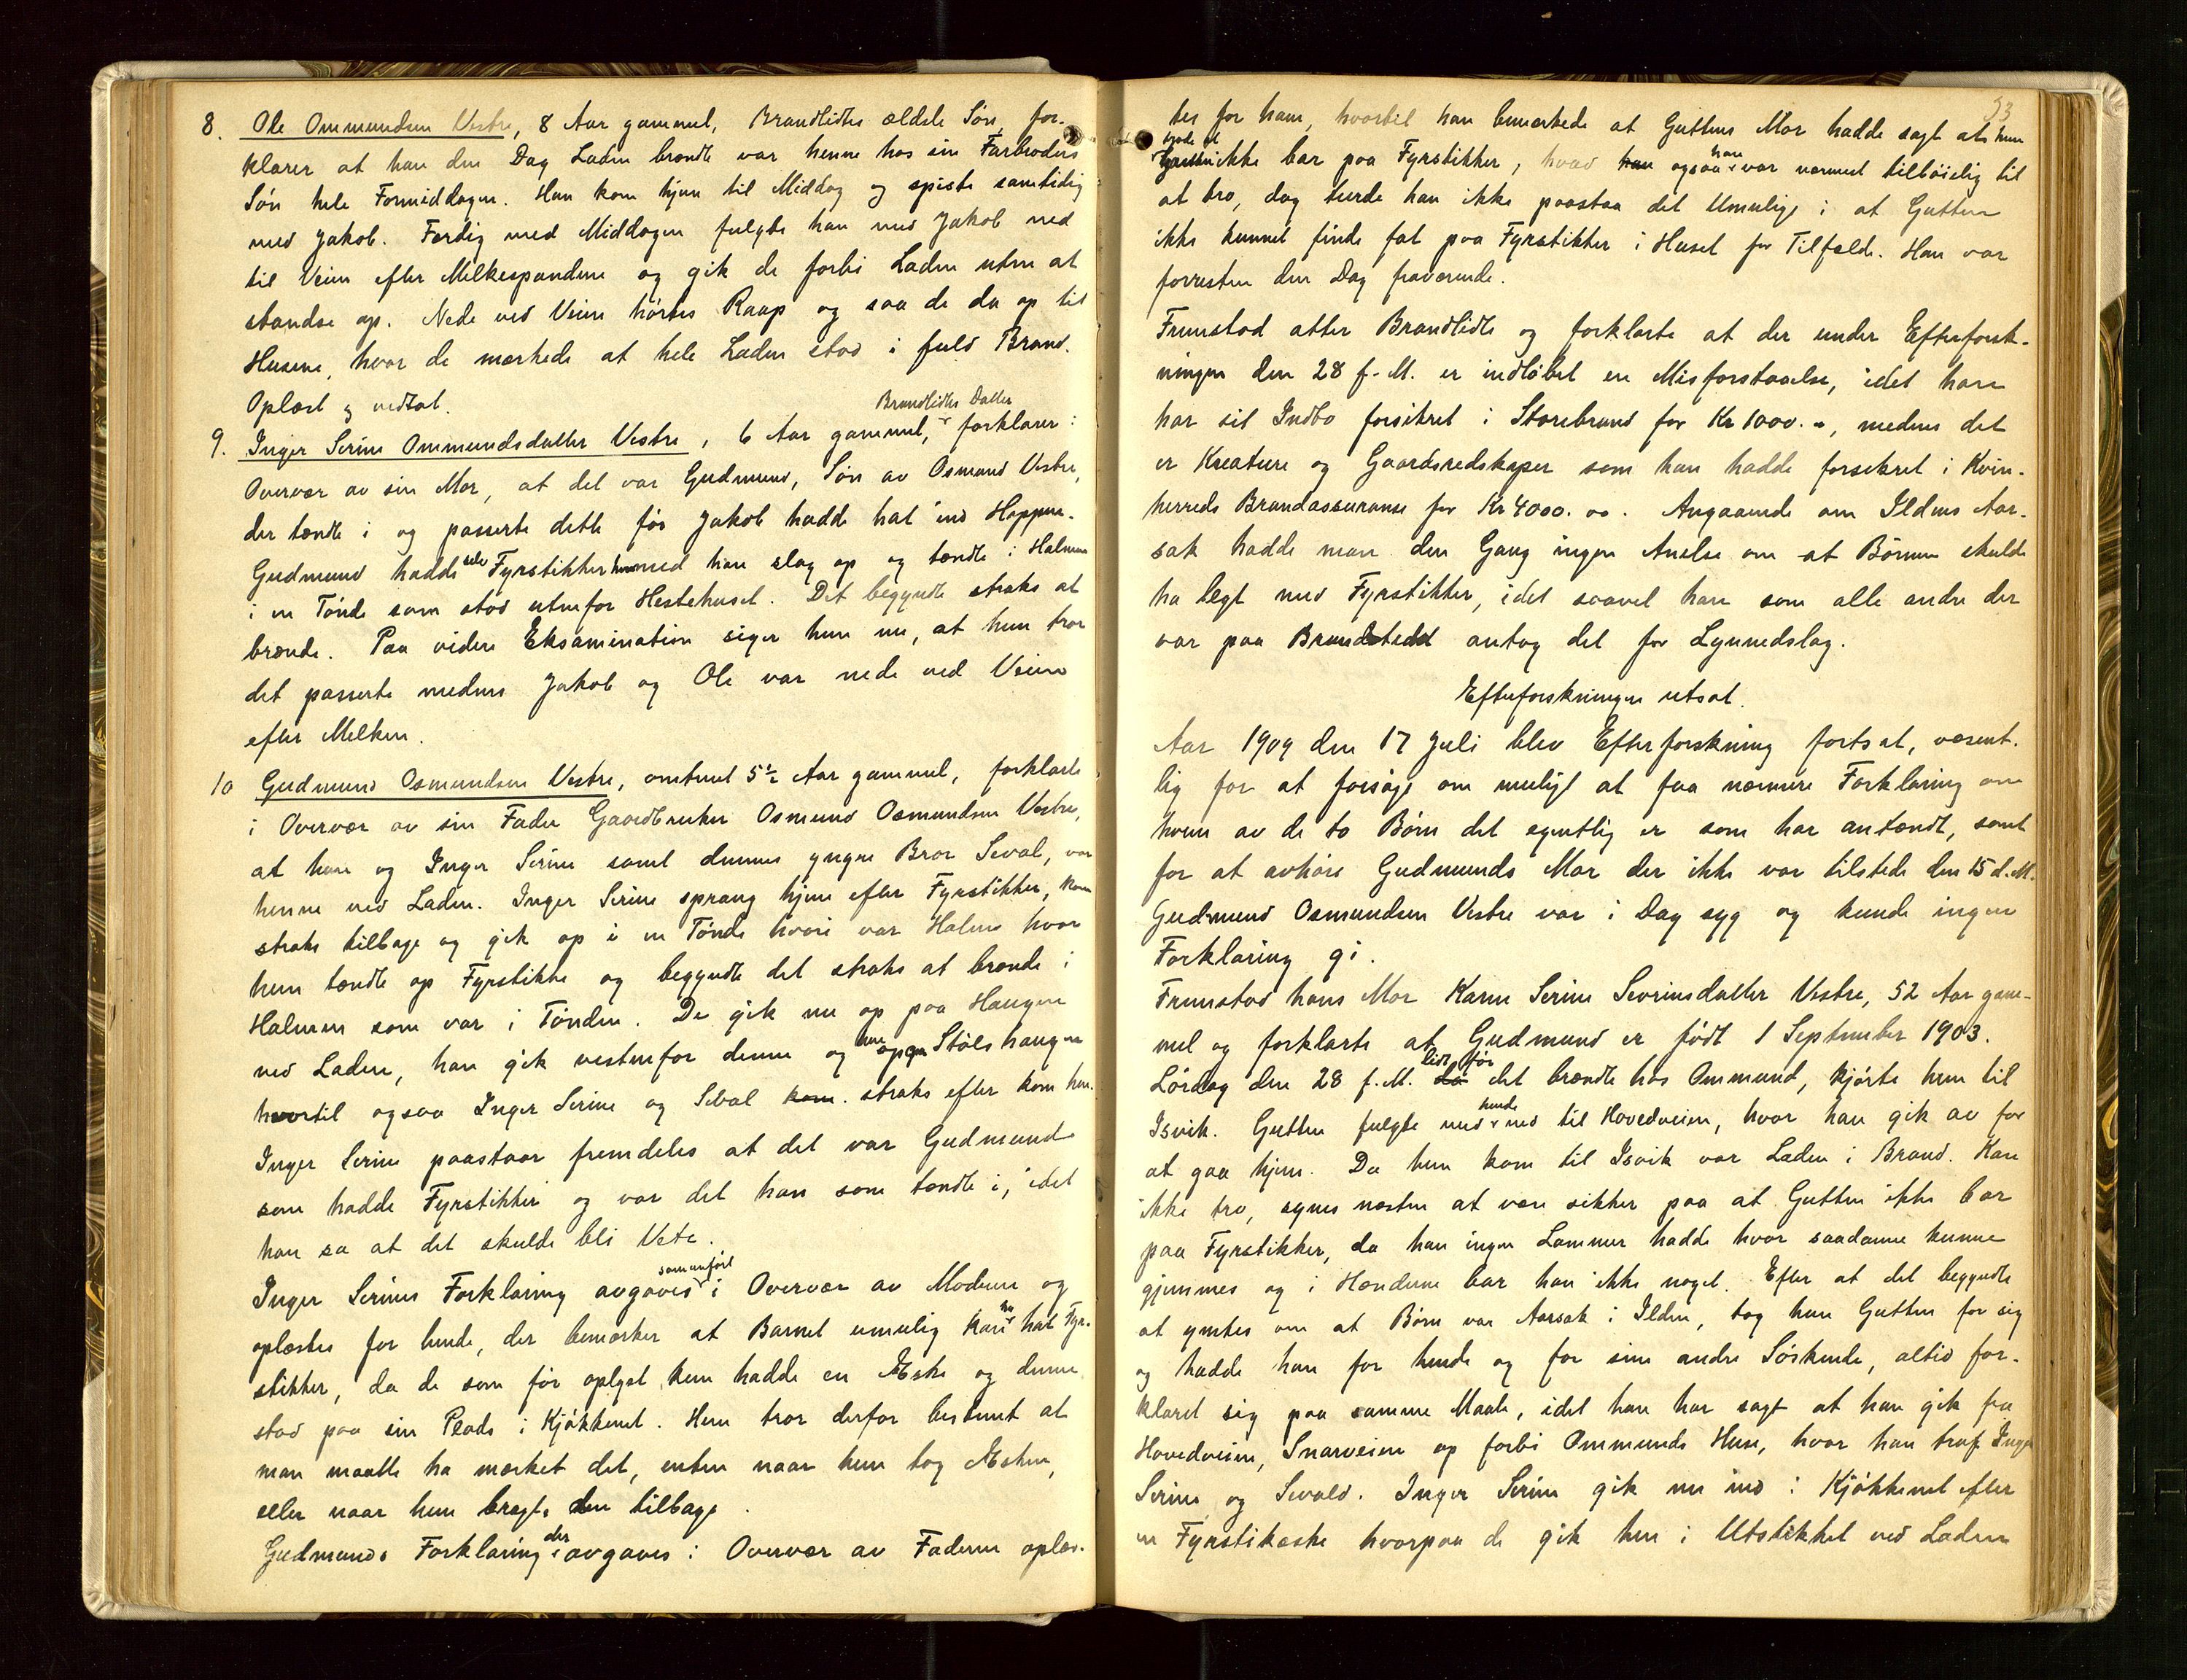 8. Ole Ommundsen Vestre, 8 Aar gammel, Brandlidtes ældste Søn, for-
klarer at han den Dag Laden brændte var henne hos sin Farbroders
Søn hele Formiddagen. Han kom hjem til Middag og spiste samtidig
med Jakob. Færdig med Middagen fulgte han med Jakob ned
til Veien efter Melkespandene og gik de forbi Laden uten at
standse op. Nede ved Veien hørtes Raap og saa de da op til
Husene, hvor de mærkede at hele Laden stod i fuld Brand.
Oplæst og vedtat.
Brandlidtes Datter
9. Inger Serine Ommundsdatter Vestre, 6 Aar gammel, forklarer i
Overvær av sin Mor, at det var Gudmund, Søn av Osmund Vestre,
der tændte i og passerte dette før Jakob hadde hat ind Hoppen.
Gudmund hadde selv Fyrstikker hvormed han slog op og tændte i Halmen
i en Tønde som stod utenfor Hestehuset. Det begyndte straks at
brænde. Paa videre Eksamination siger hun nu, at hun tror
det passerte medens Jakob og Ole var nede ved Veien
efter Melken.
10 Gudmund Osmundsen Vestre, omtrent 5½ Aar gammel, forklarte
i Overvær av sin Fader Gaardbruker Osmund Osmundsen Vestre,
at han og Inger Serine samt dennes yngre Bror Sevat, var
henne ved Laden. Inger Serine sprang hjem efter Fyrstikker, kom
straks tilbage og gik op i en Tønde hvori var Halm hvor
hun tændte op Fyrstikke og begyndte det straks at brænde i
Halmen som var i Tønden. De gik nu op paa Haugen
ved Laden, han gik vestenfor denne og op paa Støls haugen
hvortil ogsaa Inger Serine og Sevat kom. straks efter kom hen.
Inger Serine paastaar fremdeles at det var Gudmund
som hadde Fyrstikker og var det han som tændte i, idet
han sa at det skulde bli Vete.
samenført
Inger Serines Forklaring avgaves i Overvær av Moderen og
oplæstes for hende, der bemærker at Barnet umulig kan ha hat Fyr-
stikker, da de som før oplyst kun hadde en Æske og denne
stod paa sin Plads i Kjøkkenet. Hun tror derfor bestemt at
man maatte ha mærket det, enten naar hun tog Æsken,
eller naar hun bragte den tilbage.
Gudmunds Forklaring der avgaves i Overvær av Faderen oplæs-
53
tes for ham, hvortil han bemærkede at Guttens Mor hadde sagt at hun
trode at Gutten ikke bar paa Fyrstikker, hvad han ogsaa han var nærmest tilbøielig til
at tro, dog turde han ikke paastaa det Umulige i at Gutten
ikke kunnet finde fat paa Fyrstikker i Huset for Tilfælde. Han var
forresten den Dag fraværende.
Fremstod atter Brandlidte og forklarte at der under Efterforsk-
ningen den 28 f.M. er indløbet en Misforstaaelse, idet han
har sit Indbo forsikret i Storebrand for Kr 1000.-, medens det
er Kreature og Gaardsredskaper som han hadde forsekret i Kvin-
herreds Brandassuranse for Kr 4000.00. Angaaende om Ildens Aar-
sak hadde man den Gang ingen Anelse om at Børnene skulde
ha legt med Fyrstikker, idet saavel han som alle andre der
var paa Brandstedet antog det for Lynnedslag.
Efterforskningen utsat.
Aar 1909 den 17 Juli blev Efterforskning fortsat, væsent-
lig for at forsøge om muligt at faa nærmere Forklaring om
hvem av de to Børn det egentlig er som har antændt, samt
for at avhøre Gudmunds Mor der ikke var tilstede den 15 d.M.
Gudmund Osmundsen Vestre var i Dag syg og kunde ingen
Forklaring gi.
Fremstod hans Mor Karen Serine Sevrinsdatter Vestre, 52 Aar gam-
mel og forklarte at Gudmund er født 1 September 1903.
Lørdag den 28 f.M. da lidt før det brændte hos Ommund, kjørte hun til
Isvik. Gutten fulgte med hende ned til Hovedveien, hvor han gik av for
at gaa hjem. Da hun kom til Isvik var Laden i Brand. Kan
ikke tro, synes næsten at være sikker paa at Gutten ikke bar
paa Fyrstikker, da han ingen Lommer hadde hvor saadanne kunne
gjemmes og i Hænderne bar han ikke noget. Efter at det begyndte
at ymtes om at Børn var Aarsak i Ilden, tog hun Gutten for sig
og hadde han for hende og for sine andre Søskende, altid for-
klaret sig paa samme Maate, idet han har sagt at han gik fra
Hovedveien, Snarveien op forbi Ommunds Huse, hvor han traf Inger
Serine og Sevald. Inger Serine gik nu ind i Kjøkkenet efter
en Fyrstikæske hvorpaa de gik hen i Utstikket ved Laden